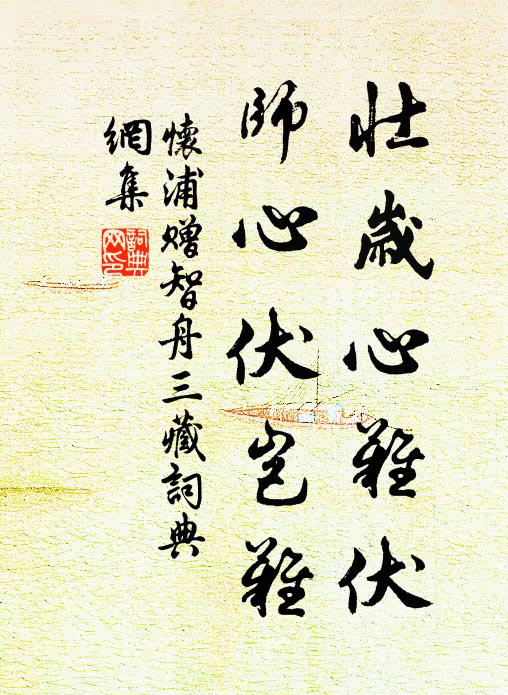 壯歲心難伏
師心伏豈難
懷浦贈智舟三藏詞典
網集
詞典網印